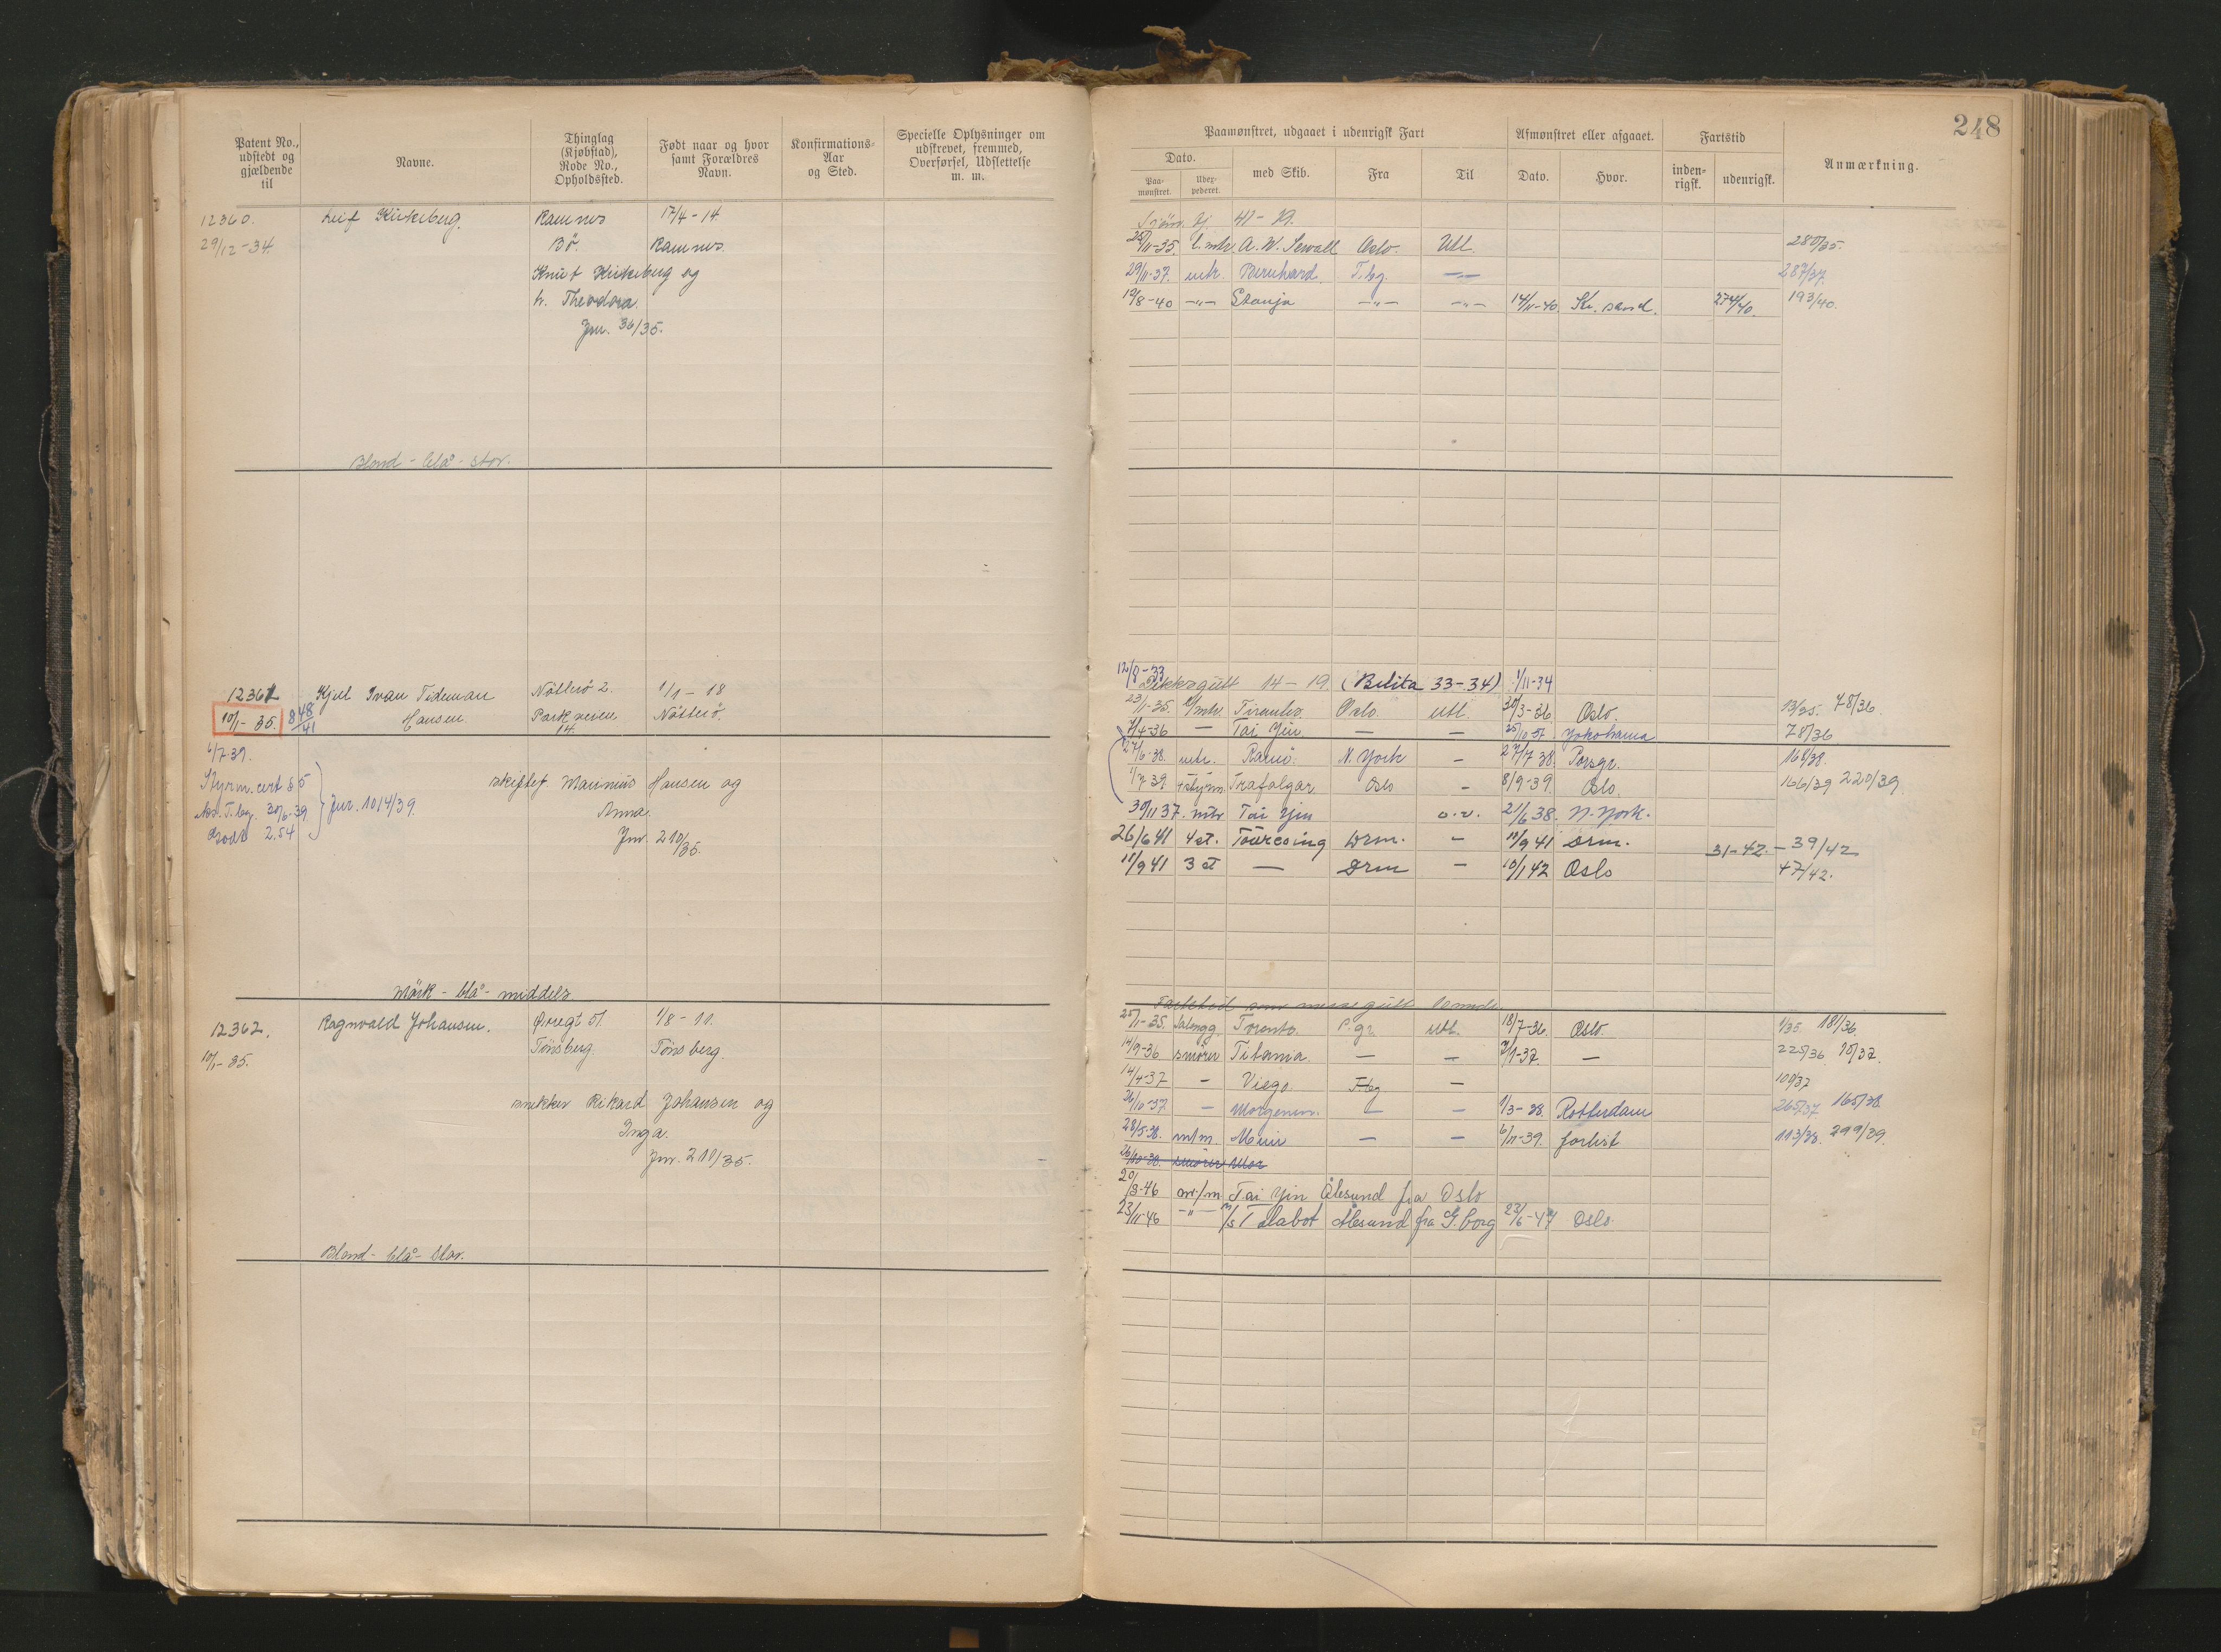 248
Patent No., udstedt og gjældende til
Navne.
Thinglag (Kjøbstad), Rode No., Opholdssted.
Født naar og hvor samt Forældres Navn.
Konfirmations-Aar og Sted.
Specielle Oplysninger om udskrevet, fremmed, Overførsel, Udslettelse m. m.
Paamønstret, udgaaet i udenrigsk Fart
Afmønstret eller afgaaet.
Fartstid
Anmærkning.
Dato.
med Skib.
Fra
Til
Dato.
Hvor.
inden-rigsk.
udenrigsk.
Paa-mønstret.
12360. Leif Kirkeberg. Ramnes 17/4-14
29/12-34. Bö. Ramnes.
Knut Kirkeberg og
h. Theodora.
Jnr. 36/35.
Blond - blå - stor.
41-19.
25/11-35. A.W. Sewall Oslo. Utl. 280/35.
29/11-37. mtr. Bernhard. T.bg. —"— 287/37.
19/8-40 —"— Stanja —"— —"— 14/11-40. Kr. sand. 274/40. 193/40.
12361 Kjel Ivan Tideman Nötterö 2. 1/1-18
10/1-35. 848/41 Hansen. Parkveien 14. Nötterö.
6/7-39.
Styrm.cert § 5
T.bg. 30/6-39
2.54
Jnr. 1014/39.
skiftef. Maunius Hansen og
Anna.
Jnr. 210/35.
Mörk - blå - middels.
12/8-33
Dekksgutt 14-19 (Belita 33-34) 1/11-34
23/1-35. Oslo. Utl. 3-36. Oslo. 13/35. 78/36.
4-36 — Tai Yin — — Yokohama 78/36
6-38. mtr. Ranö. N. York - 27/7 38. Porsgr. 168/38.
7 39. Trafalgar. Oslo - 8/9-39. Oslo. 166/39 220/39.
30/11 37. mtr Tai Yin o.v. 21/6 38. N. York.
26/6 41 4 st. Touresing Drm. - 11/9 41 Drm. 31-42. - 39/42
11/9 41 3 st — Drm - 10/1 42 Oslo 47/42.
12362. Ragnvald Johansen. Øvregt 51. 1/8-11.
10/1-35. Tönsberg. Tönsberg.
snekker Rikard Johansen og
Inga.
Jnr. 211/35.
Blond - blå - stor.
25/1-35. Toronto P.gr. Utl. 18/7-36. Oslo. 1/35. 181/36.
14/9-36 smörer Titania. — — 1-37. — 225/36 10/37.
14/4-37 — Vigo. T.bg — 100/37
26/10-37. — Morgenen. — — 1/3-38. Rotterdam 265/37. 165/38
28/5-38. m/m. — — 6/11-39. forlist 113/38. 299/39.
26/10-38. smörer Mor
20/3-46 m/m Tai Yin Ålesund fra Oslo
23/11-46 —"— m/s Talabot Ålesund fra G.borg 23/6-47 Oslo.